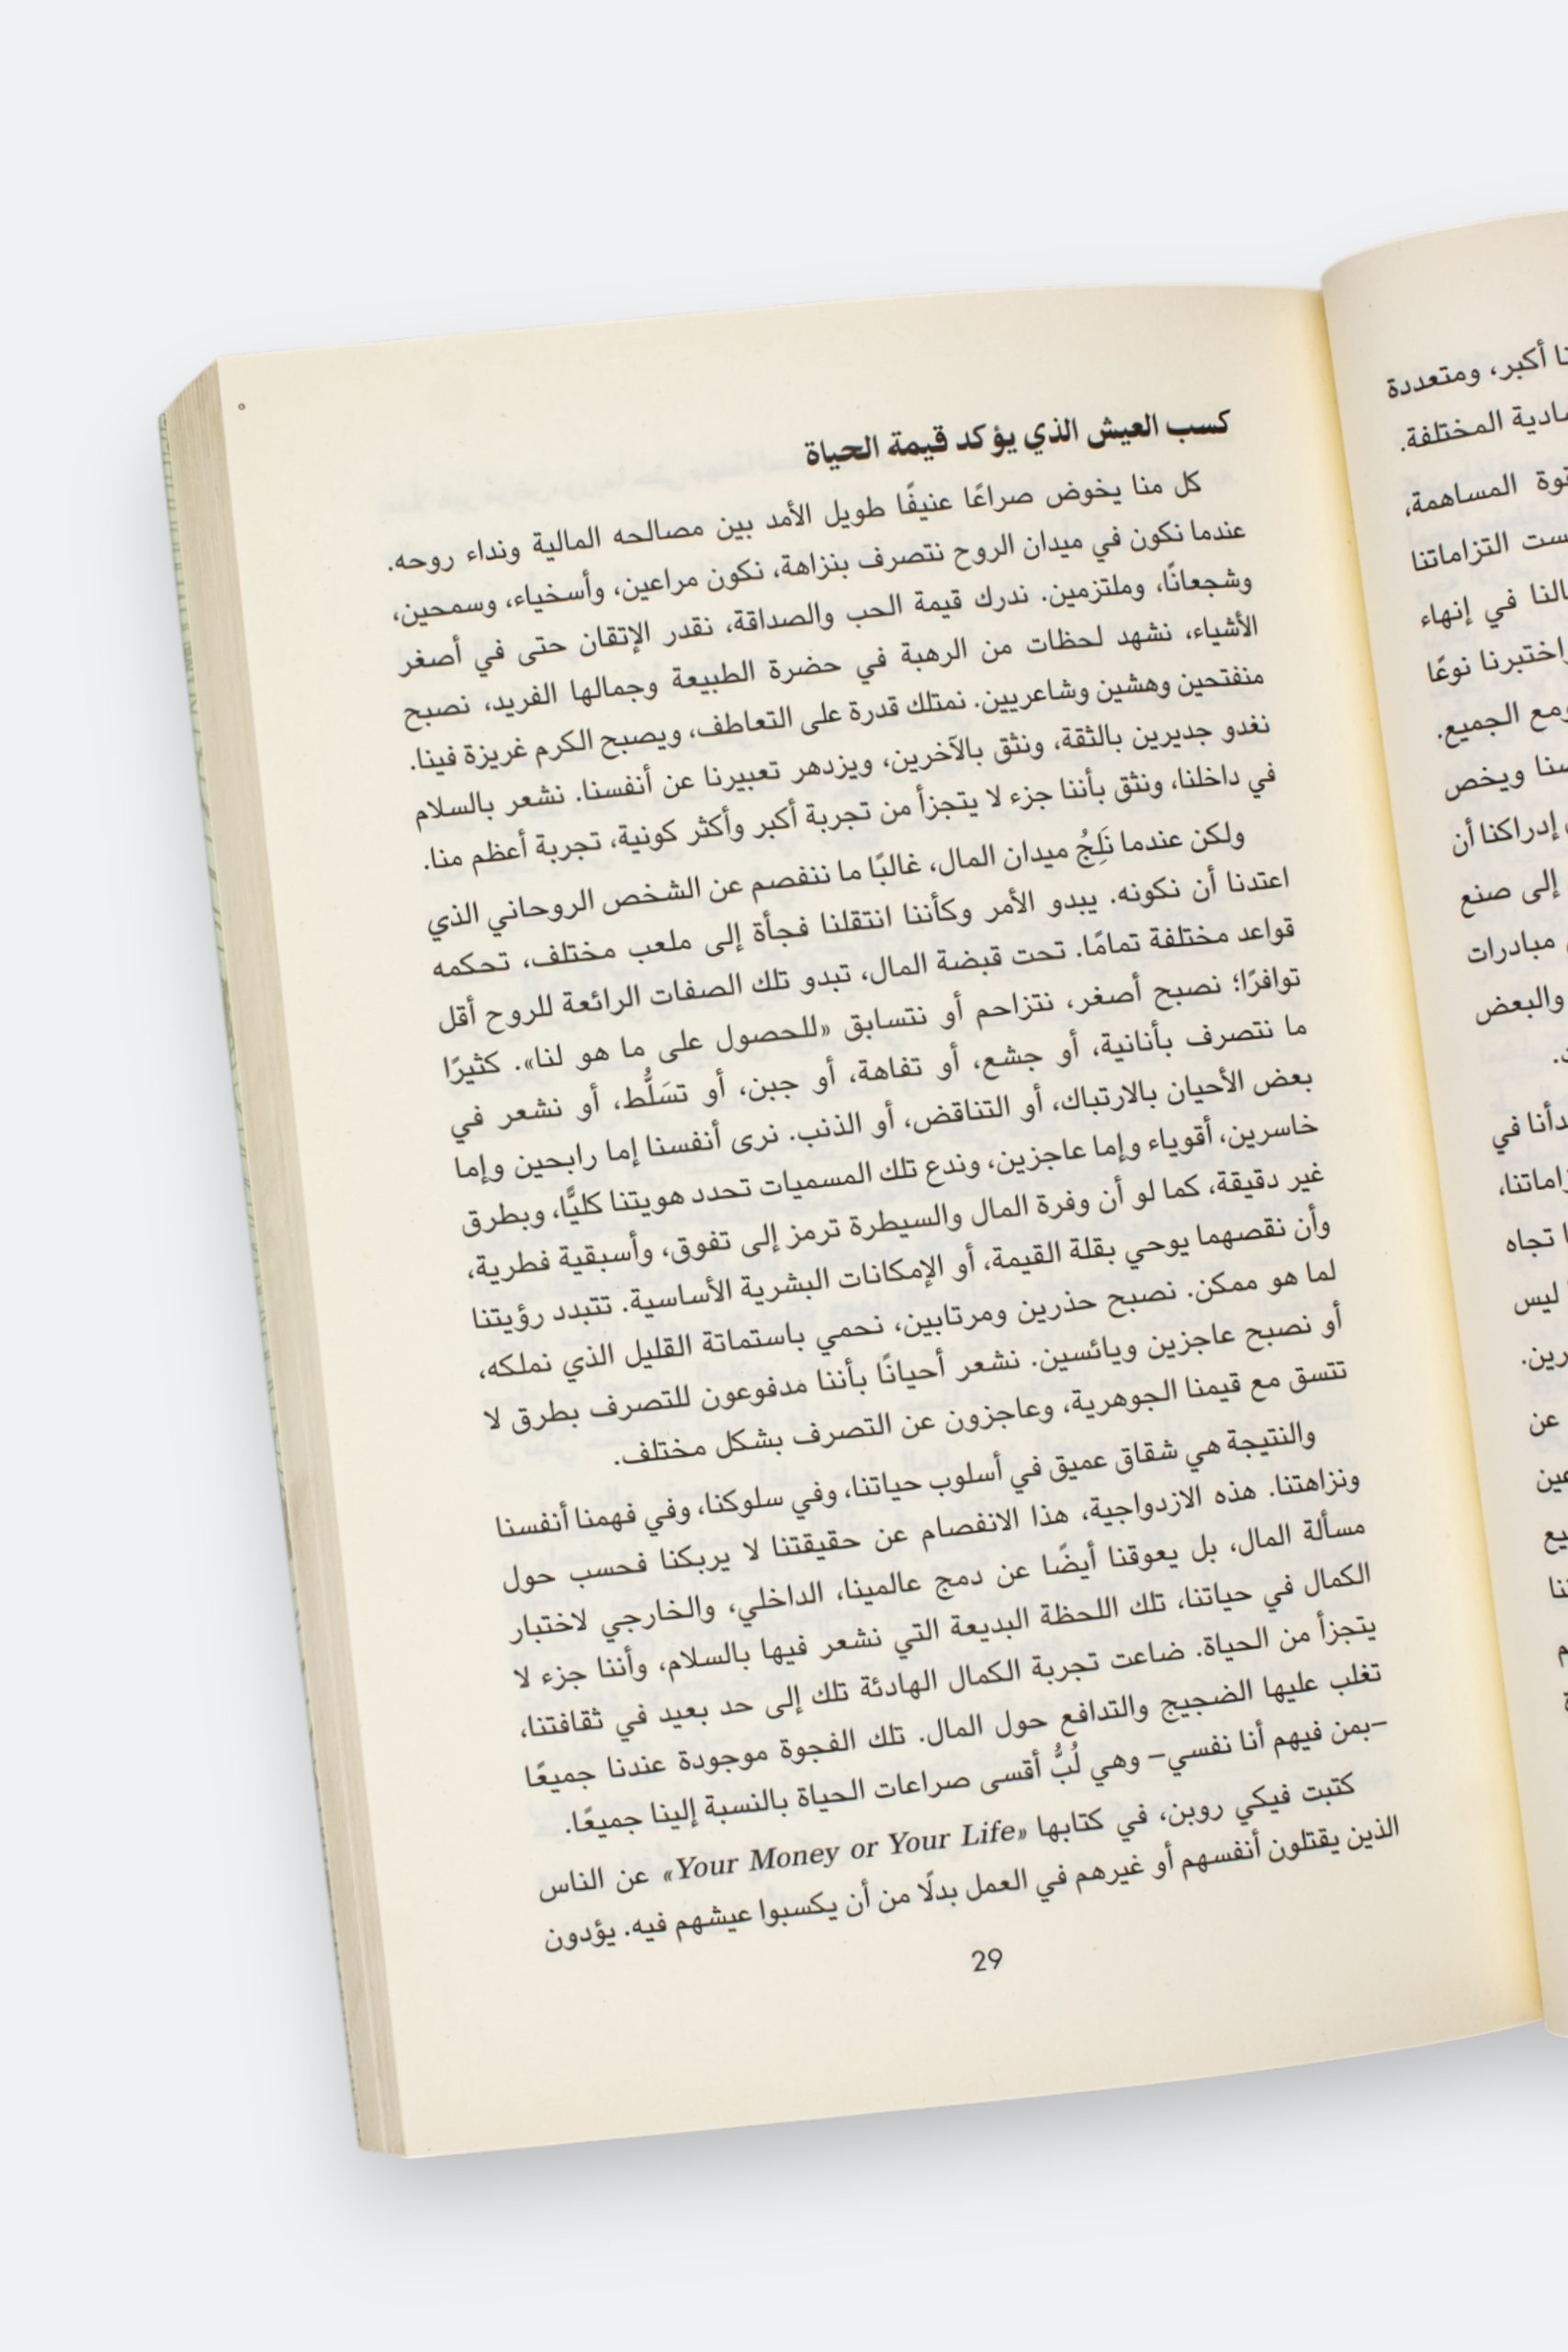 كسب العيش الذي يؤكد قيمة الحياة
كل منا يخوض صراعًا عنيفًا طويل الأمد بين مصالحه المالية ونداء روحه.
عندما نكون في ميدان الروح نتصرف بنزاهة، نكون مراعين، وأسخياء، وسمحين،
وشجعانًا، وملتزمين. ندرك قيمة الحب والصداقة، نقدر الإتقان حتى في أصغر
الأشياء، نشهد لحظات من الرهبة في حضرة الطبيعة وجمالها الفريد، نصبح
منفتحين وهشين وشاعريين. نمتلك قدرة على التعاطف، ويصبح الكرم غريزة فينا.
نغدو جديرين بالثقة، ونثق بالآخرين، ويزدهر تعبيرنا عن أنفسنا. نشعر بالسلام
في داخلنا، ونثق بأننا جزء لا يتجزأ من تجربة أكبر وأكثر كونية، تجربة أعظم منا.
ولكن عندما نَلِجُ ميدان المال، غالبًا ما ننفصم عن الشخص الروحاني الذي
اعتدنا أن نكونه. يبدو الأمر وكأننا انتقلنا فجأة إلى ملعب مختلف، تحكمه
قواعد مختلفة تمامًا. تحت قبضة المال، تبدو تلك الصفات الرائعة للروح أقل
توافرًا؛ نصبح أصغر، نتزاحم أو نتسابق «للحصول على ما هو لنا». كثيرًا
ما نتصرف بأنانية، أو جشع، أو تفاهة، أو جبن، أو تسَلُّط، أو نشعر في
بعض الأحيان بالارتباك، أو التناقض، أو الذنب. نرى أنفسنا إما رابحين وإما
خاسرين، أقوياء وإما عاجزين، وندع تلك المسميات تحدد هويتنا كليًّا، وبطرق
غير دقيقة، كما لو أن وفرة المال والسيطرة ترمز إلى تفوق، وأسبقية فطرية،
وأن نقصهما يوحي بقلة القيمة، أو الإمكانات البشرية الأساسية. تتبدد رؤيتنا
لما هو ممكن. نصبح حذرين ومرتابين، نحمي باستماتة القليل الذي نملكه،
أو نصبح عاجزين ويائسين. نشعر أحيانًا بأننا مدفوعون للتصرف بطرق لا
تتسق مع قيمنا الجوهرية، وعاجزون عن التصرف بشكل مختلف.
والنتيجة هي شقاق عميق في أسلوب حياتنا، وفي سلوكنا، وفي فهمنا أنفسنا
ونزاهتنا. هذه الازدواجية، هذا الانفصام عن حقيقتنا لا يربكنا فحسب حول
مسألة المال، بل يعوقنا أيضًا عن دمج عالمينا، الداخلي، والخارجي لاختبار
الكمال في حياتنا، تلك اللحظة البديعة التي نشعر فيها بالسلام، وأننا جزء لا
يتجزأ من الحياة. ضاعت تجربة الكمال الهادئة تلك إلى حد بعيد في ثقافتنا،
تغلب عليها الضجيج والتدافع حول المال. تلك الفجوة موجودة عندنا جميعًا
–بمن فيهم أنا نفسي– وهي لُبُّ أقسى صراعات الحياة بالنسبة إلينا جميعًا.
كتبت فيكي روبن، في كتابها «Your Money or Your Life» عن الناس
الذين يقتلون أنفسهم أو غيرهم في العمل بدلًا من أن يكسبوا عيشهم فيه. يؤدون
29
أكبر، ومتعددة
المختلفة.
المساهمة،
التزاماتنا
في إنهاء
اختبرنا نوعًا
ومع الجميع.
ويخص
إدراكنا أن
إلى صنع
مبادرات
والبعض
في
تجاه
ليس
عن